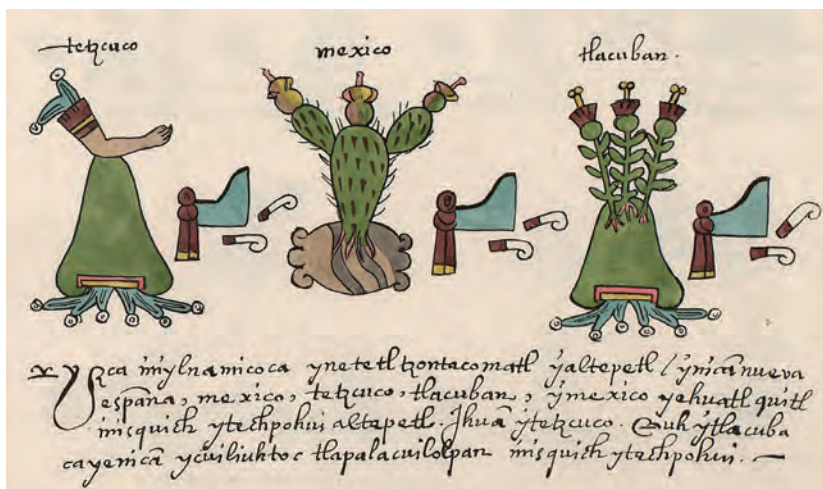 tetzcuco
mexico
tlacuban.
Yzca inylnamicoca ynetetl tzontecomatl yaltepetl / ynican nueva
españa, mexico, tetzcuco, tlacuban, ymexico yehuatl quitl
inisquich ytechpohui altepetl. Jhuã ytetzcuco. Auh ytlacuba
cayenicã ycuiliuhtoc tlapalacuilolpan inisquich ytechpohui.